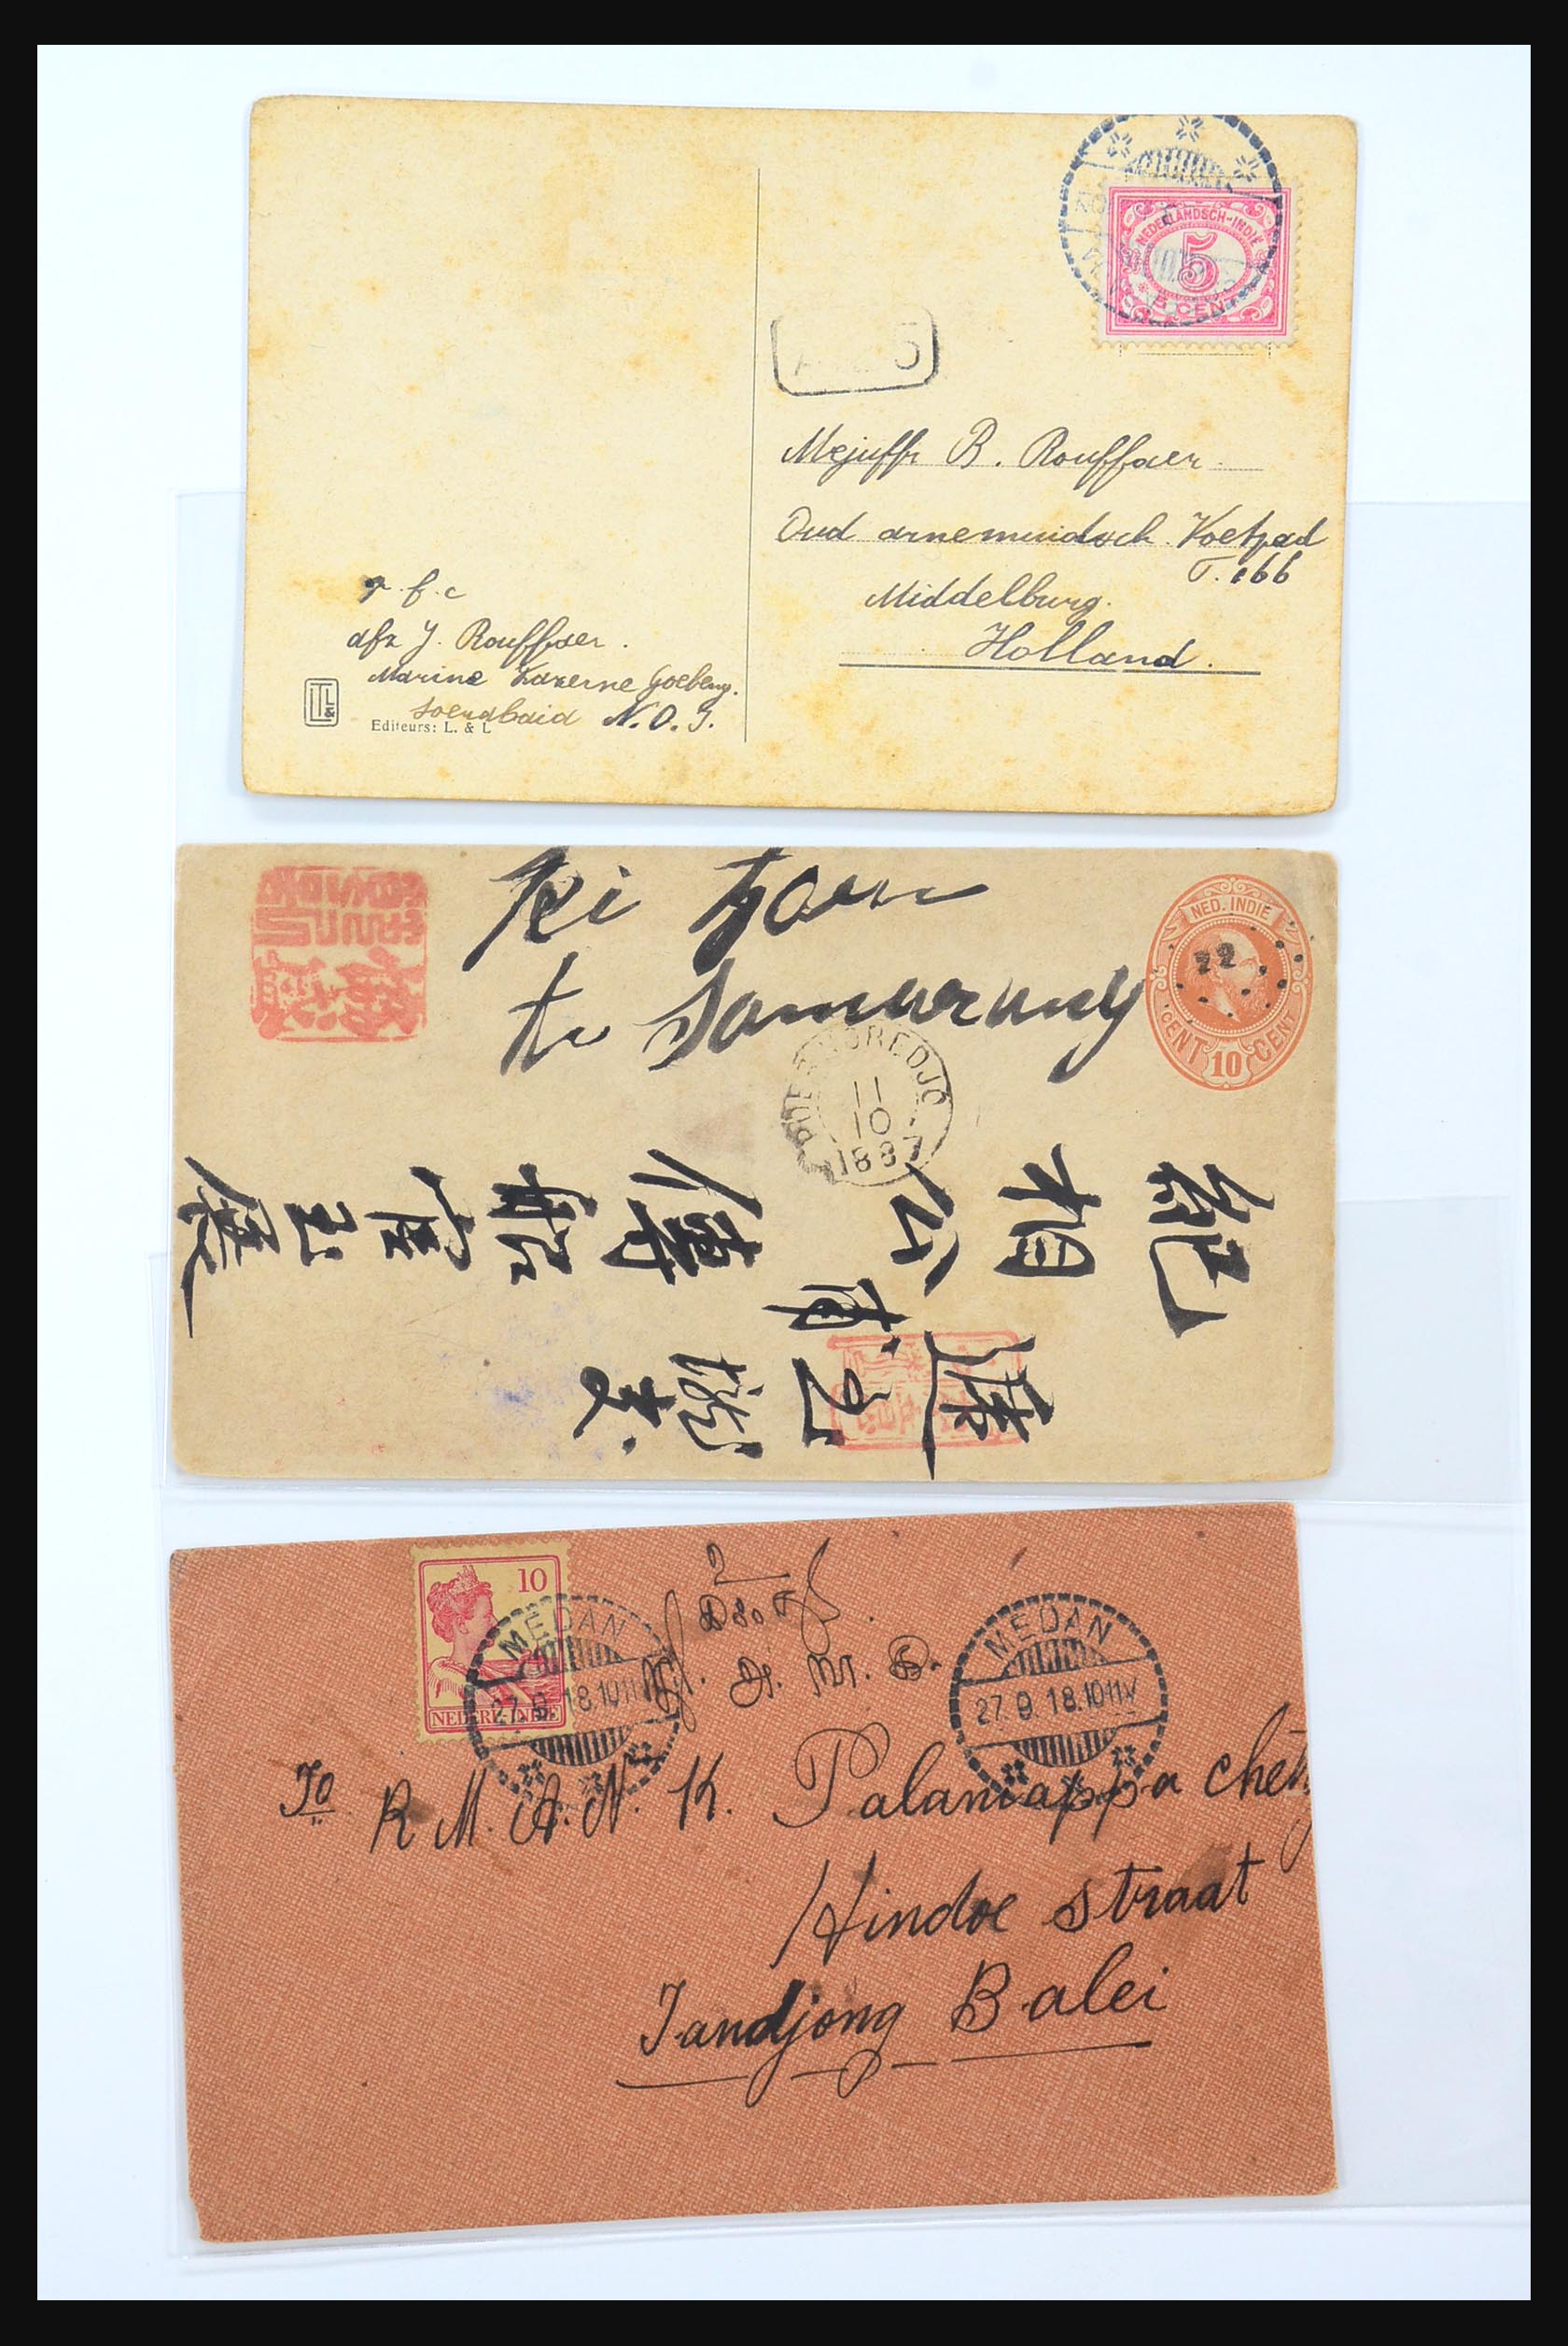 NEDERLANDSCH-INDIË
5
CENT
5
Mejuffr B. Rouffaer
Oud arnemuidsch Voetpad
T. 166
Middelburg.
Holland.
p. f. c
afz J. Rouffaer.
Marine Kazerne Goebeng.
Soerabaia N.O.I.
L & L
Editeurs: L. & L
Kei tjoen
te Samarang
NED. INDIE
22
CENT 10 CENT
POERWOREDJO
11
10
1887
紀相公
傳船官玉展
10
NEDERL-INDIE
MEDAN
27.9.18.10 11V
MEDAN
27.9.18.10 11V
To
R M. A. N. K. Palaniappa chetty
Hindoe straat
Tandjong Balei